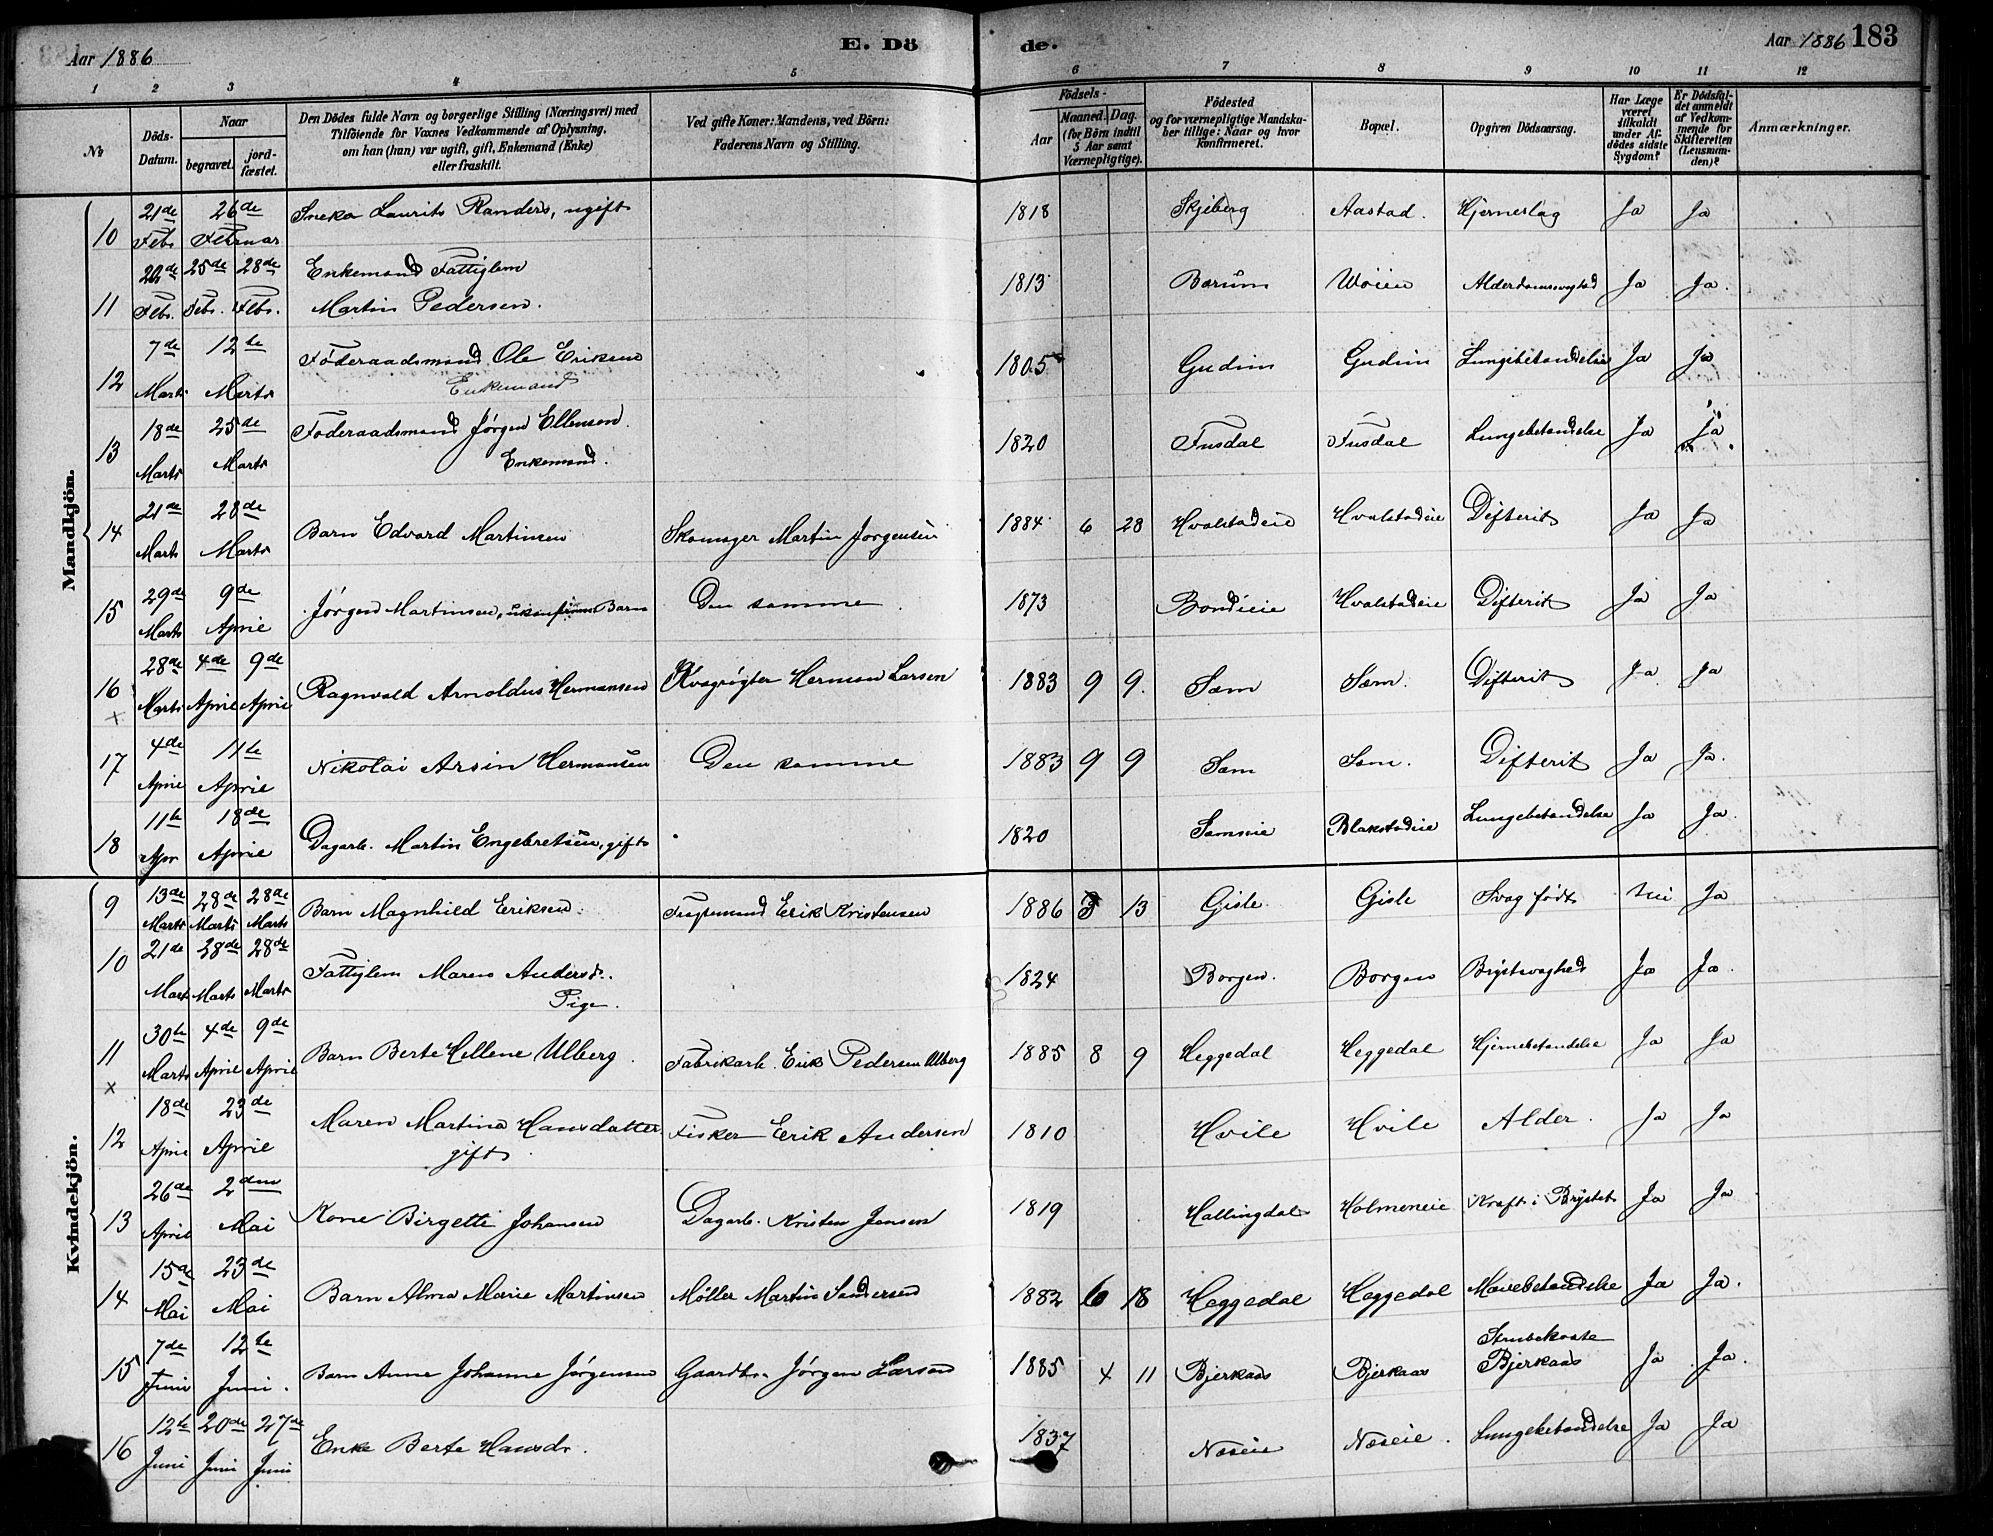 Aar 1886
E. Dö
de.
Aar 1886 183
1 2 3 4 5 6 7 8 9 10 11 12
No
Döds-Datum.
Naar
begravet.
jord-fæstet.
Den Dödes fulde Navn og borgerlige Stilling (Næringsvei) med
Tilföiende for Voxnes Vedkommende af Oplysning,
om han (hun) var ugift, gift, Enkemand (Enke)
eller fraskilt.
Ved gifte Koner: Mandens, ved Börn:
Faderens Navn og Stilling.
Födsels-
Aar
Maaned. Dag.
(for Börn indtil
5 Aar samt
Værnepligtige).
Födested
og for værnepligtige Mandska-
ber tillige: Naar og hvor
konfirmeret.
Bopæl.
Opgiven Dödsaarsag.
Har Læge
været
tilkaldt
under Af-
dödes sidste
Sygdom?
Er Dödsfal-
det anmeldt
af Vedkom-
mende for
Skifteretten
(Lensman-
den)?
Anmærkninger.
Mandkjön.
10 21de Febr 26de Februar Sneka Laurits Randers, ugift 1818 Skjeberg Aastad. Hjerneslag Ja Ja
11 22de Febr. 25de Febr. 28de Febr. Enkemand Fattiglem
Martin Pedersen. 1813 Bærum Wøien Alderdomssvaghed Ja Ja.
12 7de Marts 12te Marts Föderaadsmand Ole Eriksen
Enkemand 1805 Gudim Gudim Lungebetændelse Ja Ja
13 18de Marts 25de Marts Föderaadsmand Jørgen Ellensen.
Enkemand. 1820 Fusdal Fusdal Lungebetændelse Ja Ja.
14 21de Marts 28de Marts Barn Edvard Martinsen Skomager Martin Jørgensen 1884 6 28 Hvalstadeie Hvalstadeie Difterit Ja Ja
15 29de Marts 9de April Jørgen Martinsen, ukonfirm. Barn Den samme 1873 Bondieie Hvalstadeie Difterit Ja Ja
16 x 28de Marts 4de April 9de April Ragnvald Arnoldus Hermansen Kvægrøgter Herman Larsen 1883 9 9. Sem Sem. Difterit Ja Ja
17 4de April 11te April Nikolai Arsin Hermansen Den samme 1883 9 9 Sem Sem. Difterit Ja Ja.
18 11te Apr 18de April Dagarb. Martin Engebretsen, gift 1820 Semseie Blakstadeie Lungebetændelse Ja Ja.
Kvindekjön.
9 13de Marts 28de Marts 28de Marts Barn Magnhild Eriksen. Erik Kristensen 1886 3 13 Gisle. Gisle Svag født Nei Ja
10 21de Marts 28de Marts 28de Marts Fattiglem Maren Andersd.
Pige. 1824 Borgen. Borgen Brystsvaghed Ja Ja.
11 x 30te Marts 4de April 9de April Barn Berte Hellene Ulberg. Fabrikarb. Erik Pedersen Ulberg 1885 8 9 Heggedal Heggedal Hjernebetændelse Ja Ja
12 18de April 23de April Maren Martina Hansdatter.
gift Fisker Erik Andersen 1810 Hvile Hvile Alder. Ja Ja
13 26de April 2den Mai Kone Birgette Johansen Dagarb. Kristen Jensen 1819 Hallingdal Holmeneie Kræft i Brystet Ja Ja
14 15de Mai 23de Mai Barn Alma Marie Martinsen Møller Martin Sandersen 1882 6 18 Heggedal Heggedal Mavebetændelse Ja Ja.
15 7de Juni 12te Juni. Barn Anne Johanne Jørgensen Gaardbr. Jørgen Larsen 1885 4 11 Bjerkaas Bjerkaas Strubehoste
Bjerkaas Ja Ja.
16 12te Juni 20de Juni 27de Juni Enke Berte Hansdr. 1837 Næseie Næseie. Lungebetændelse Ja Ja